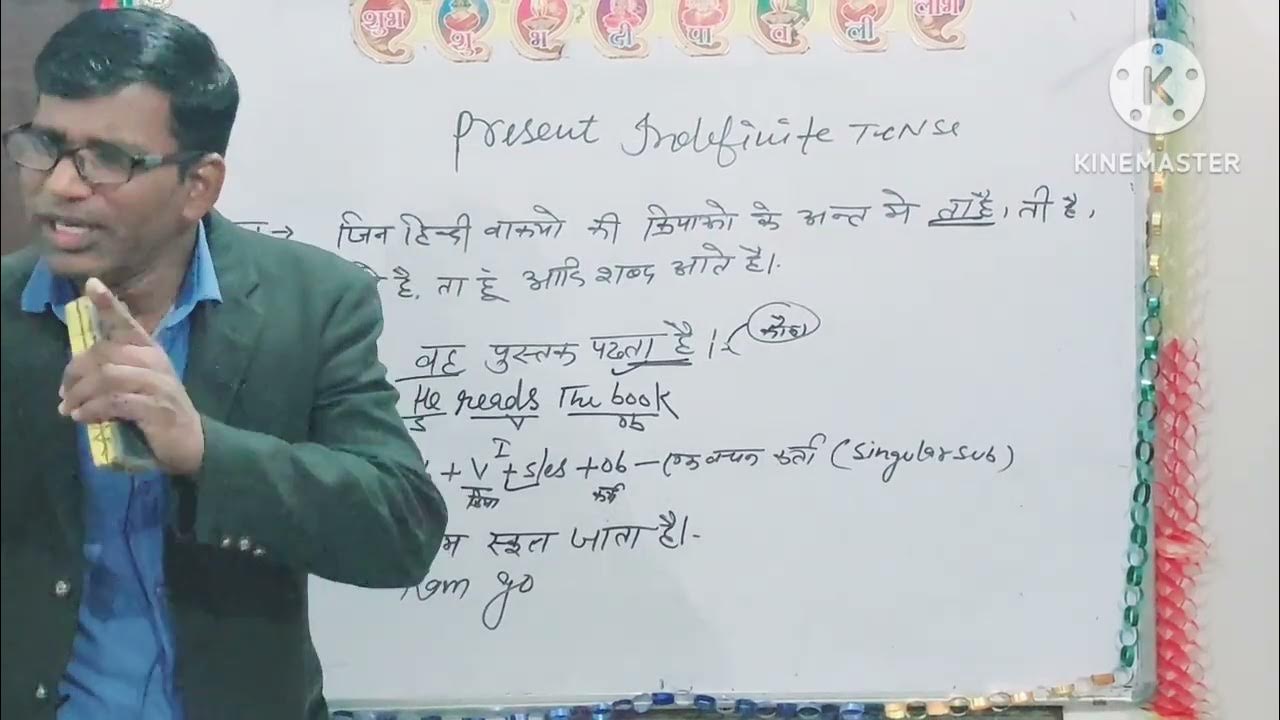 शुभ शु भ दी पा व ली लाभ
K
KINEMASTER
Present Indefinite Tense
जिन हिन्दी वाक्यो की क्रियाओ के अन्त मे ता है, ती है,
है, ता हूं आदि शब्द आते है।
वह पुस्तक पढता है।
He reads The book
S V ob
+ V I + s/es + ob - एक वचन कर्ता (Singular sub)
क्रिया कर्म
म स्कूल जाता है।
Ram go